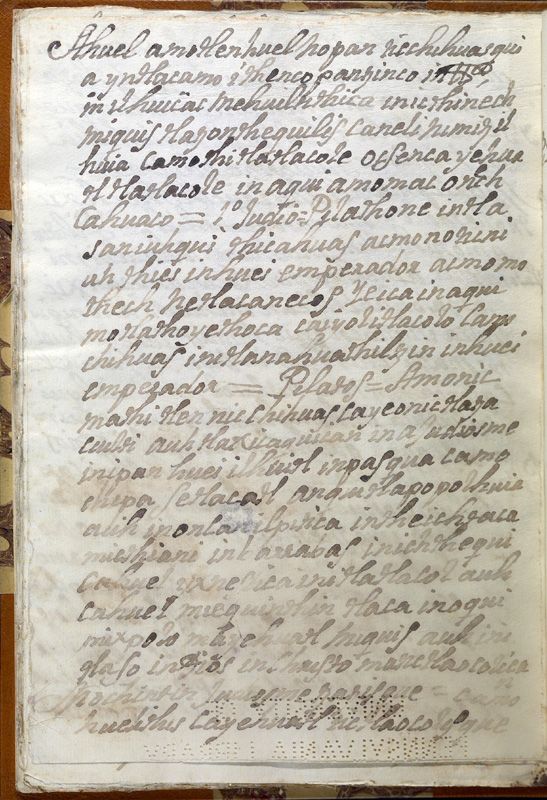 Ahuel amotlenhuel nopan ticchihuasqui
a yntlacamo ithencopantzinco
in ilhuicac mehuilthitica inicthinech
miquistlatonthequilis ca neli tumitztl
huia camo thitlatlacole ocsenca yehua
tl tlatlacole in aqui amomac onech
cahuaco = 1o Judio = Pilathone intla
saniuhqui thicahuas acmo noticni
uhthies inhuei emperador acmo mo
thech netlacanecos Yeica in aqui
motlathoyethoca caiyolitlacolo camo
chihuas in tlanahuathiltzin inhuei
emperador = Pilatos = Amonic
mathi tlen nicchihuas ca yeonictlata
cuili auh tlaxicaquican in a Judiosme
inipan huei ilhuitl in pasqua camo
chipa se tlacatl anquitlapopolhuia
auh inon ca nilpitica in theichtaca
micthiani in barrabas inicthequi
cahuel nestica ini tlatlacol auh
cahuel miequinthin tlaca in oqui
mixpolo ma yehuatl miquis auh in
tlaso in Dios in Christo
nochintin Judiosme = camo
huelithis ca yehuatl tictlaocoli que